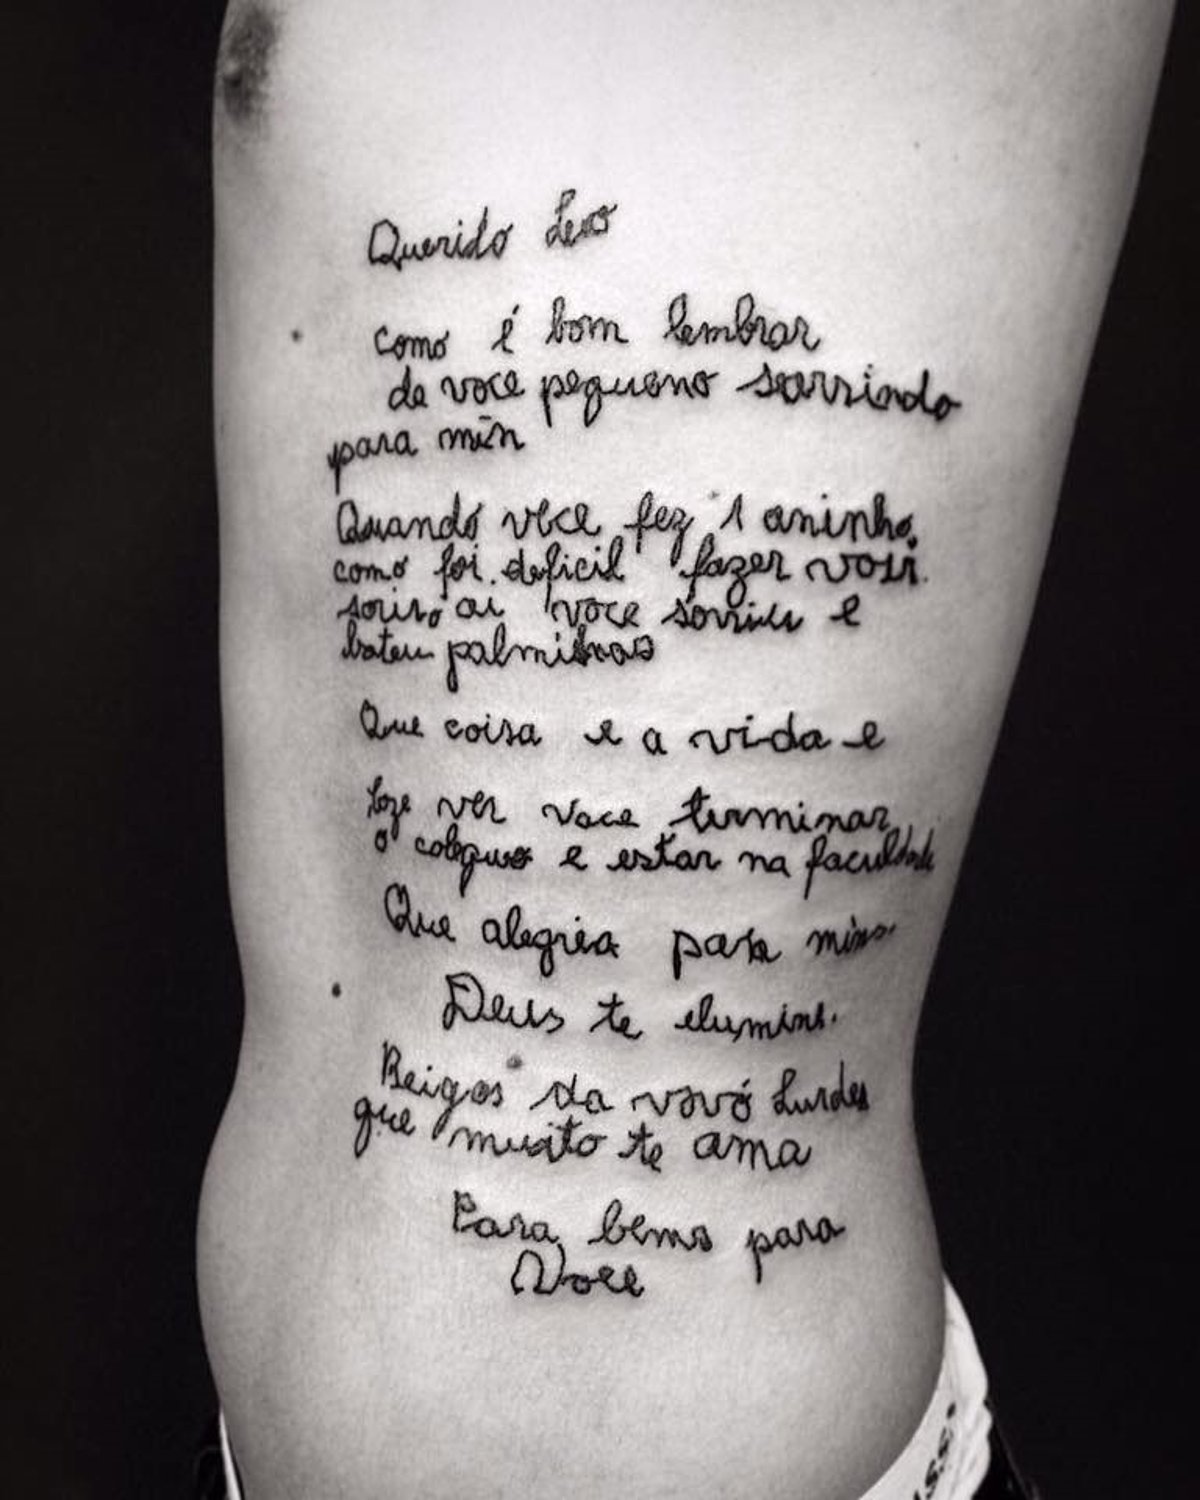 Querido Leo
como é bom lembrar
de voce pequeno sorrindo
para min
Quando voce fez 1 aninho
como foi deficil fazer voir
soriso ai voce sorriu e
bateu palminhas
Que coisa e a vida e
hoze ver voce terminar
o coleguo e estar na faculdade
Que alegria para mins
Deus te elumine.
Beigos da vovó Lurdes
que muito te ama
Para bems para
Voce